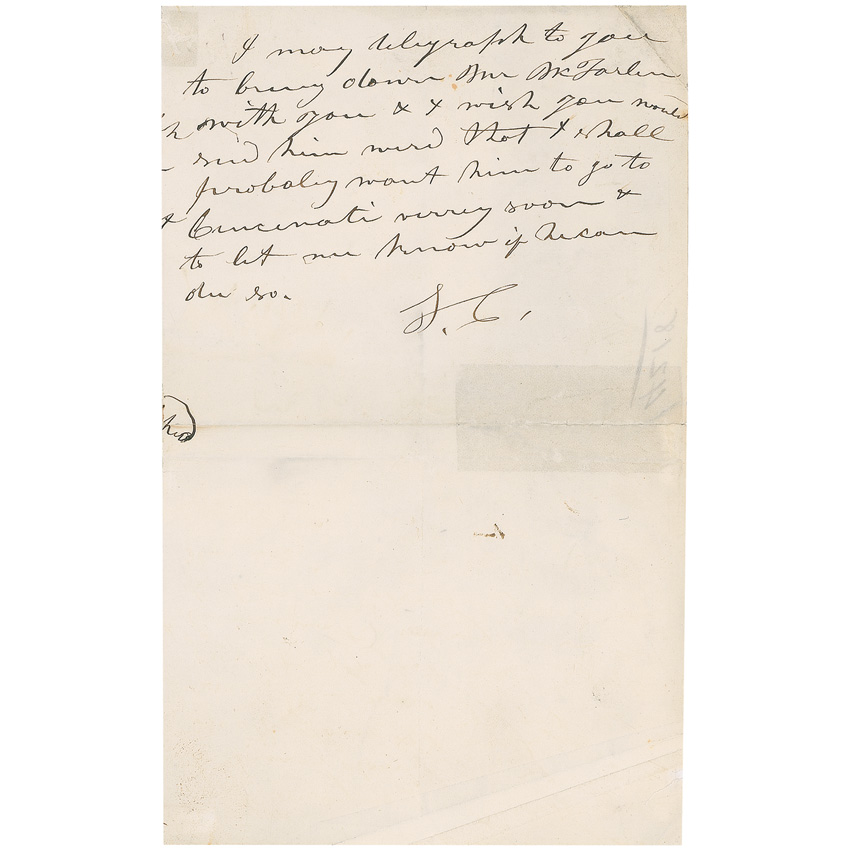 I may telegraph to you
to bring down Mr McFarlin
with you & I wish you would
send him word that I shall
probaley want him to go to
Cincinati verrey soon &
to let me know if he can
du so.
S. C.